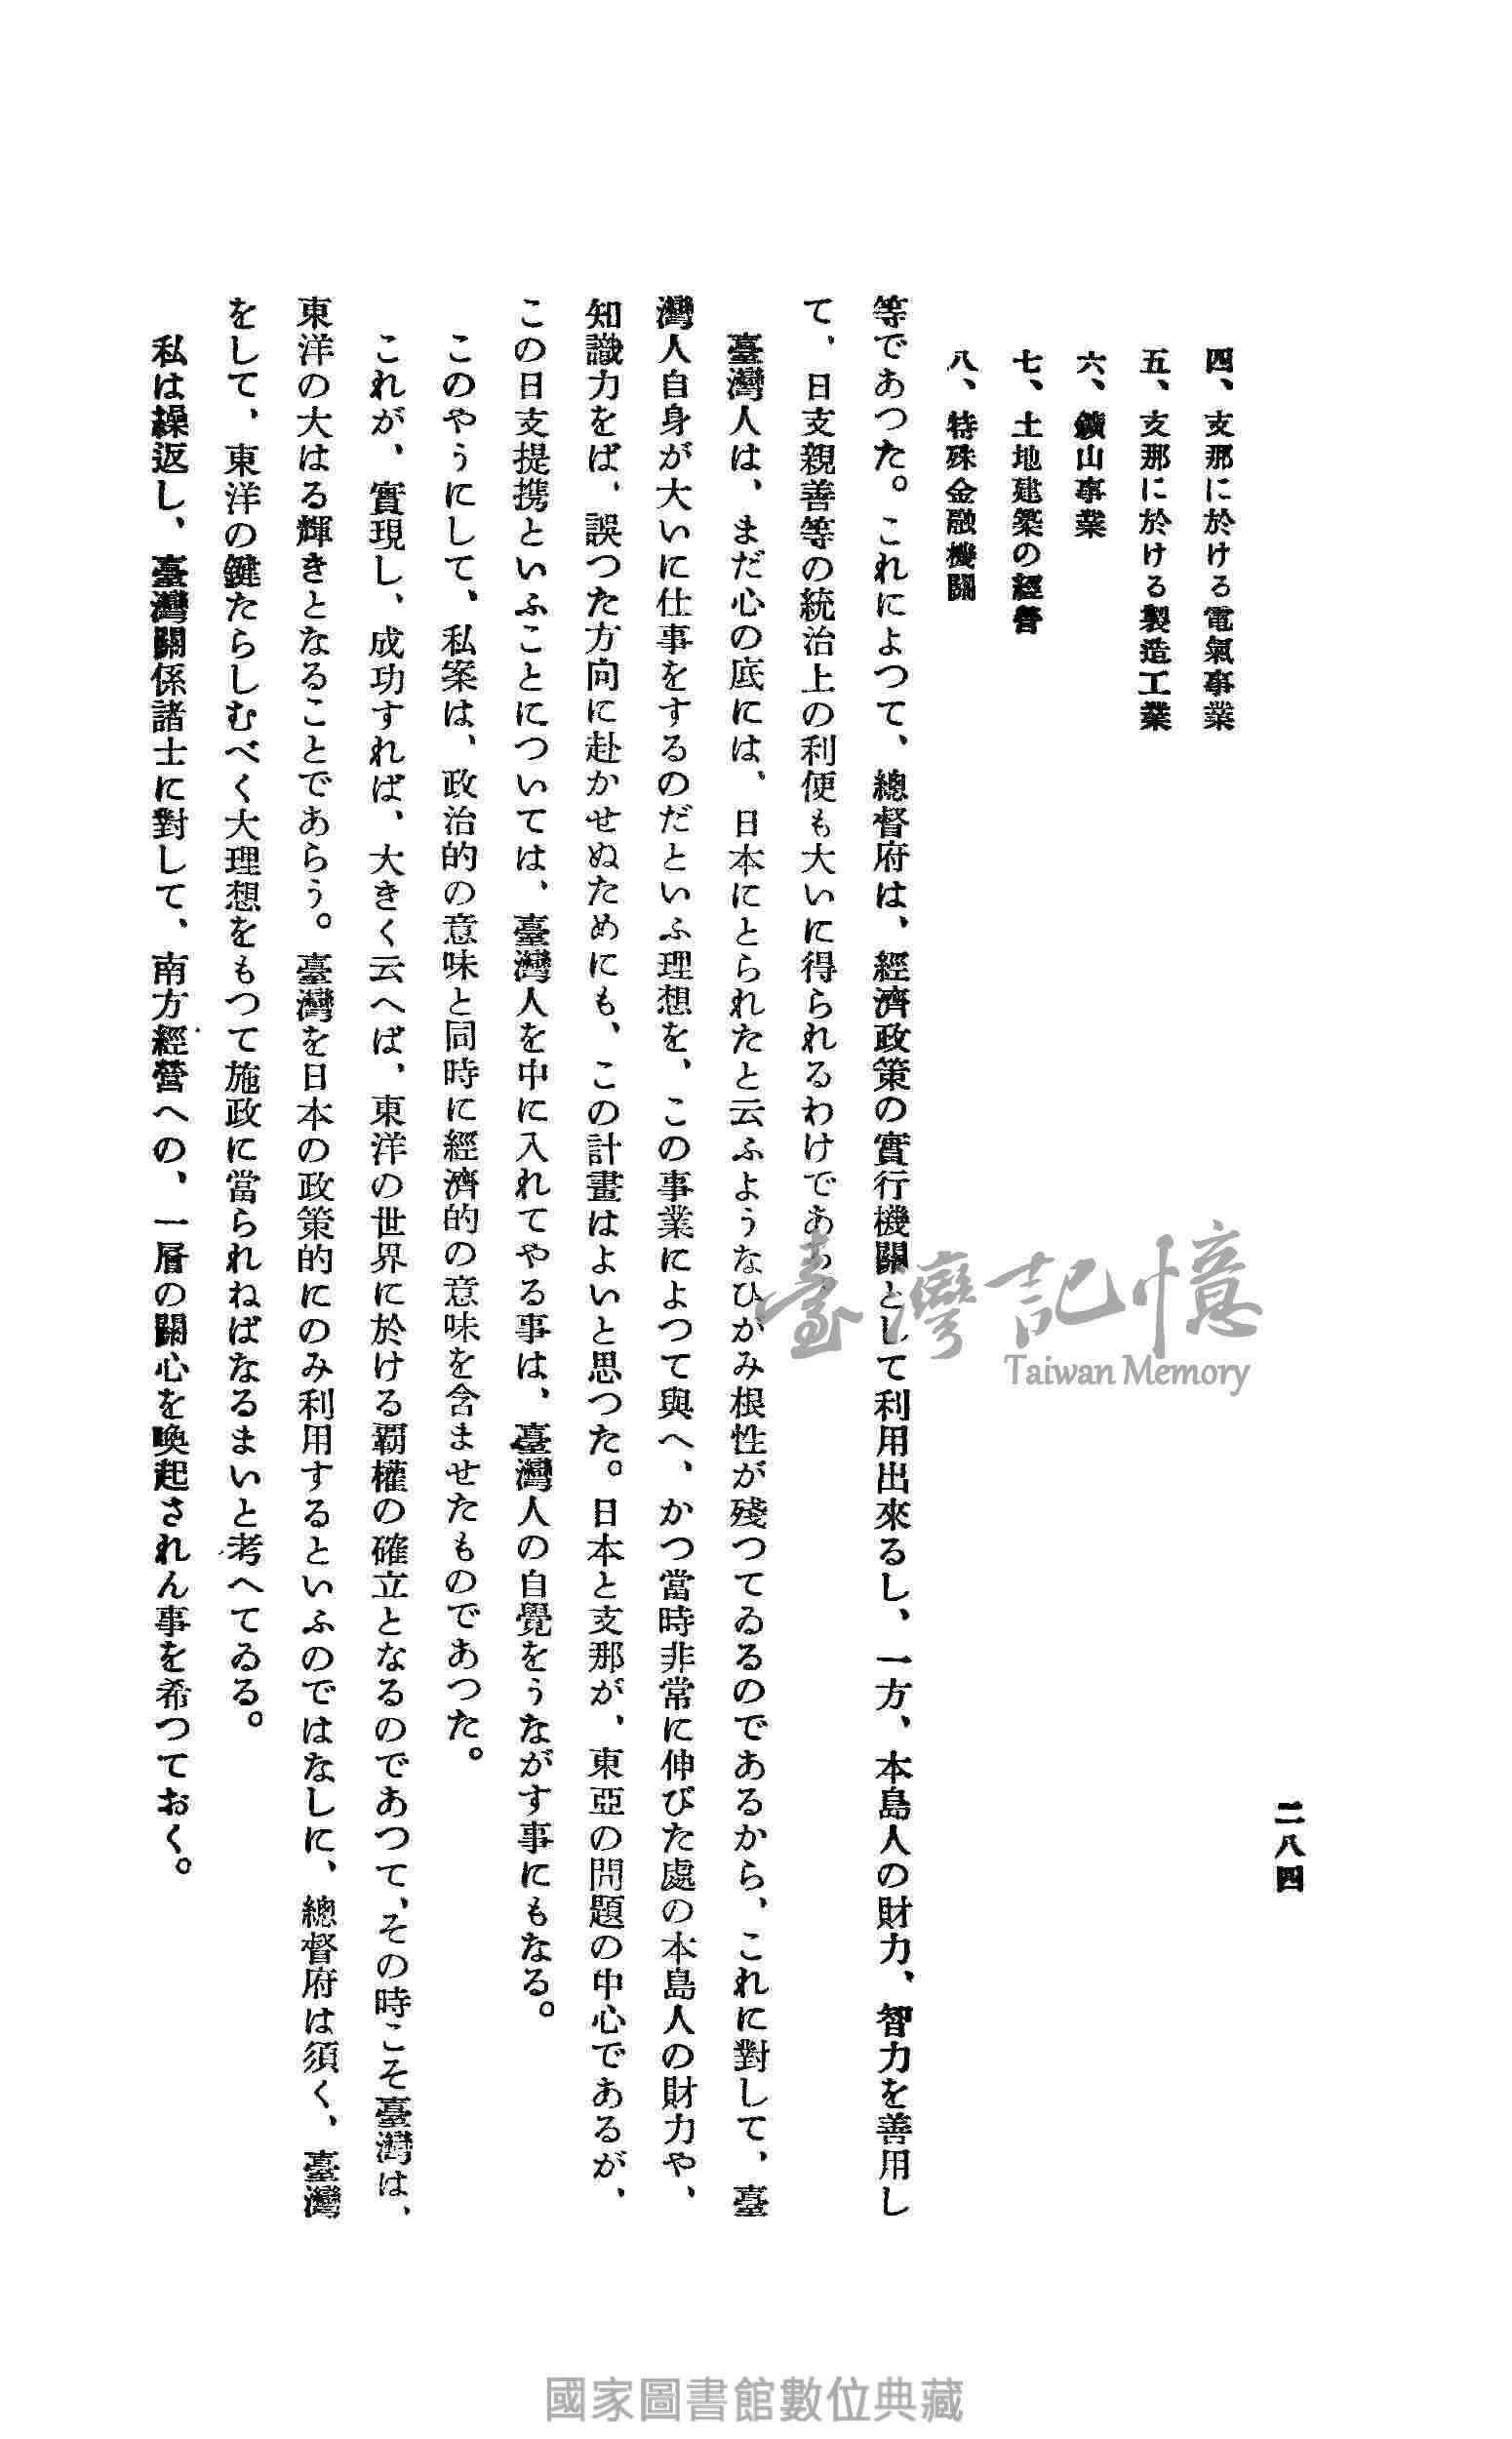 二八四
四、支那に於ける電氣事業
五、支那に於ける製造工業
六、鑛山事業
七、土地建築の經營
八、特殊金融機關
等であつた。これによつて、總督府は、經濟政策の實行機關として利用出來るし、一方、本島人の財力、智力を善用し
て、日支親善等の統治上の利便も大いに得られるわけである
臺灣人は、まだ心の底には、日本にとられたと云ふようなひがみ根性が殘つてゐるのであるから、これに對して、臺
灣人自身が大いに仕事をするのだといふ理想を、この事業によつて與へ、かつ當時非常に伸びた處の本島人の財力や、
知識力をば、誤つた方向に赴かせぬためにも、この計畫はよいと思つた。日本と支那が、東亞の問題の中心であるが、
この日支提携といふことについては、臺灣人を中に入れてやる事は、臺灣人の自覺をうながす事にもなる。
このやうにして、私案は、政治的の意味と同時に經濟的の意味を含ませたものであつた。
これが、實現し、成功すれば、大きく云へば、東洋の世界に於ける覇權の確立となるのであつて、その時こそ臺灣は、
東洋の大はる輝きとなることであらう。臺灣を日本の政策的にのみ利用するといふのではなしに、總督府は須く、臺灣
をして、東洋の鍵たらしむべく大理想をもつて施政に當られねばなるまいと考へてゐる。
私は繰返し、臺灣關係諸士に對して、南方經營への、一層の關心を喚起されん事を希つておく。
臺灣記憶
Taiwan Memory
國家圖書館數位典藏